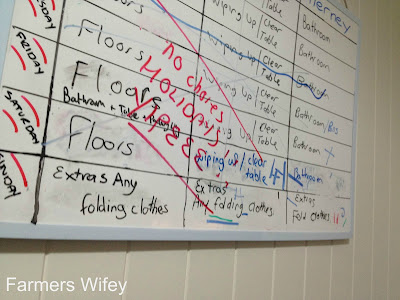 erney
Wiping Up / Clear Table
Bathroom
SDAY
Floors
Wiping Up / Clear Table
Bathroom
FRIDAY
Floors
Wiping Up / Clear Table
Bathroom
no chores
HOLIDAYS
Floors
Bathroom + Table +
Clear Table
Bathroom / Bins
SATURDAY
Floors
wiping up / clear table
Bathroom
SUNDAY
Extras Any
folding clothes
Extras
Any folding clothes
Extras
Fold clothes
Farmers Wifey